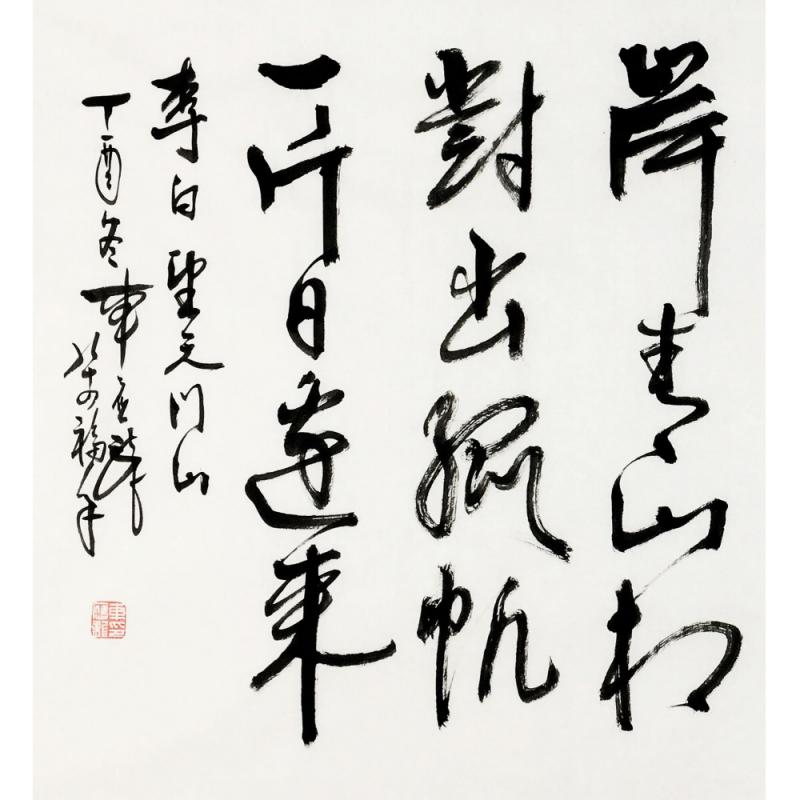 岸青山相
對出孤帆
一片日邊來
李白望天门山
丁酉冬
福